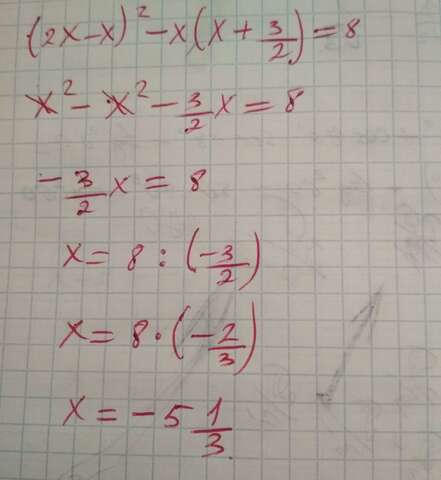 (2x-x)² - x(x + 3/2) = 8
x² - x² - 3/2 x = 8
- 3/2 x = 8
x = 8 : (-3/2)
x = 8 · (-2/3)
x = -5 1/3